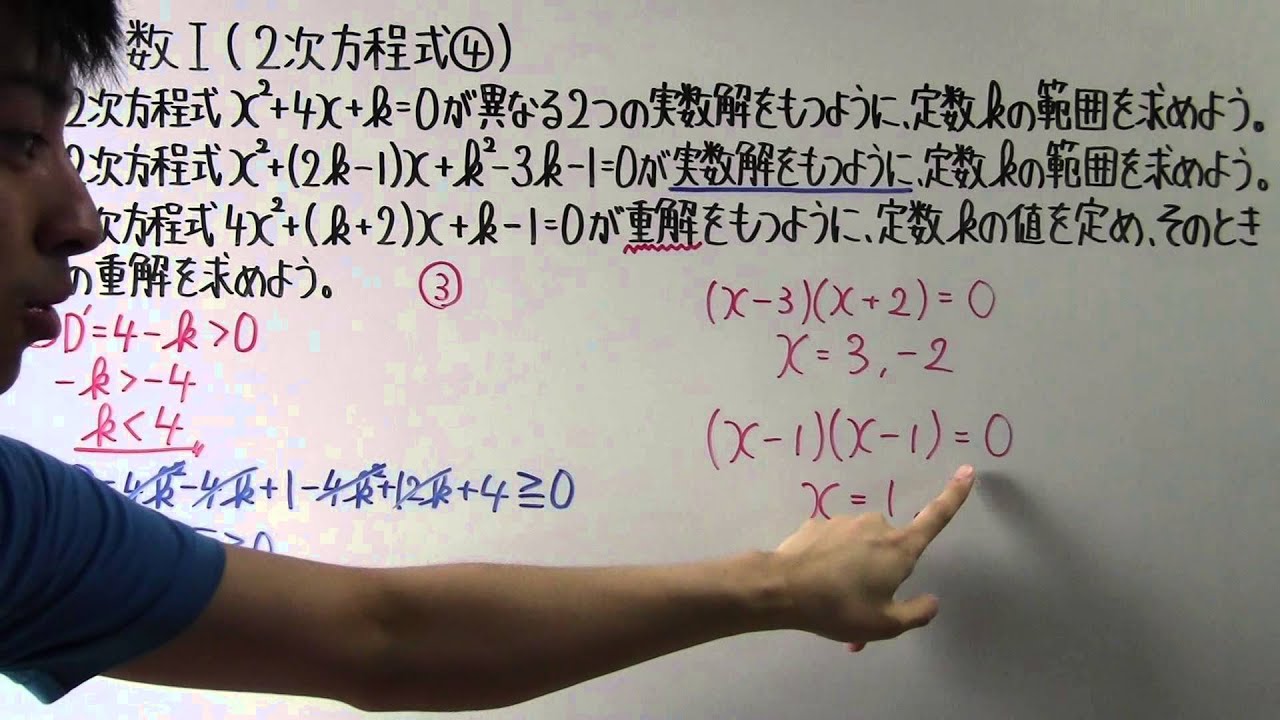 数I(2次方程式④)
2次方程式 x²+4x+k=0が異なる2つの実数解をもつように、定数kの範囲を求めよう。
2次方程式 x²+(2k-1)x+k²-3k-1=0が実数解をもつように、定数kの範囲を求めよう。
次方程式 4x²+(k+2)x+k-1=0が重解をもつように、定数kの値を定め、そのとき
の重解を求めよう。
③
D'=4-k>0
-k>-4
k<4
4k²-4k+1-4k²+12k+4≧0
≧0
(x-3)(x+2)=0
x=3,-2
(x-1)(x-1)=0
x=1